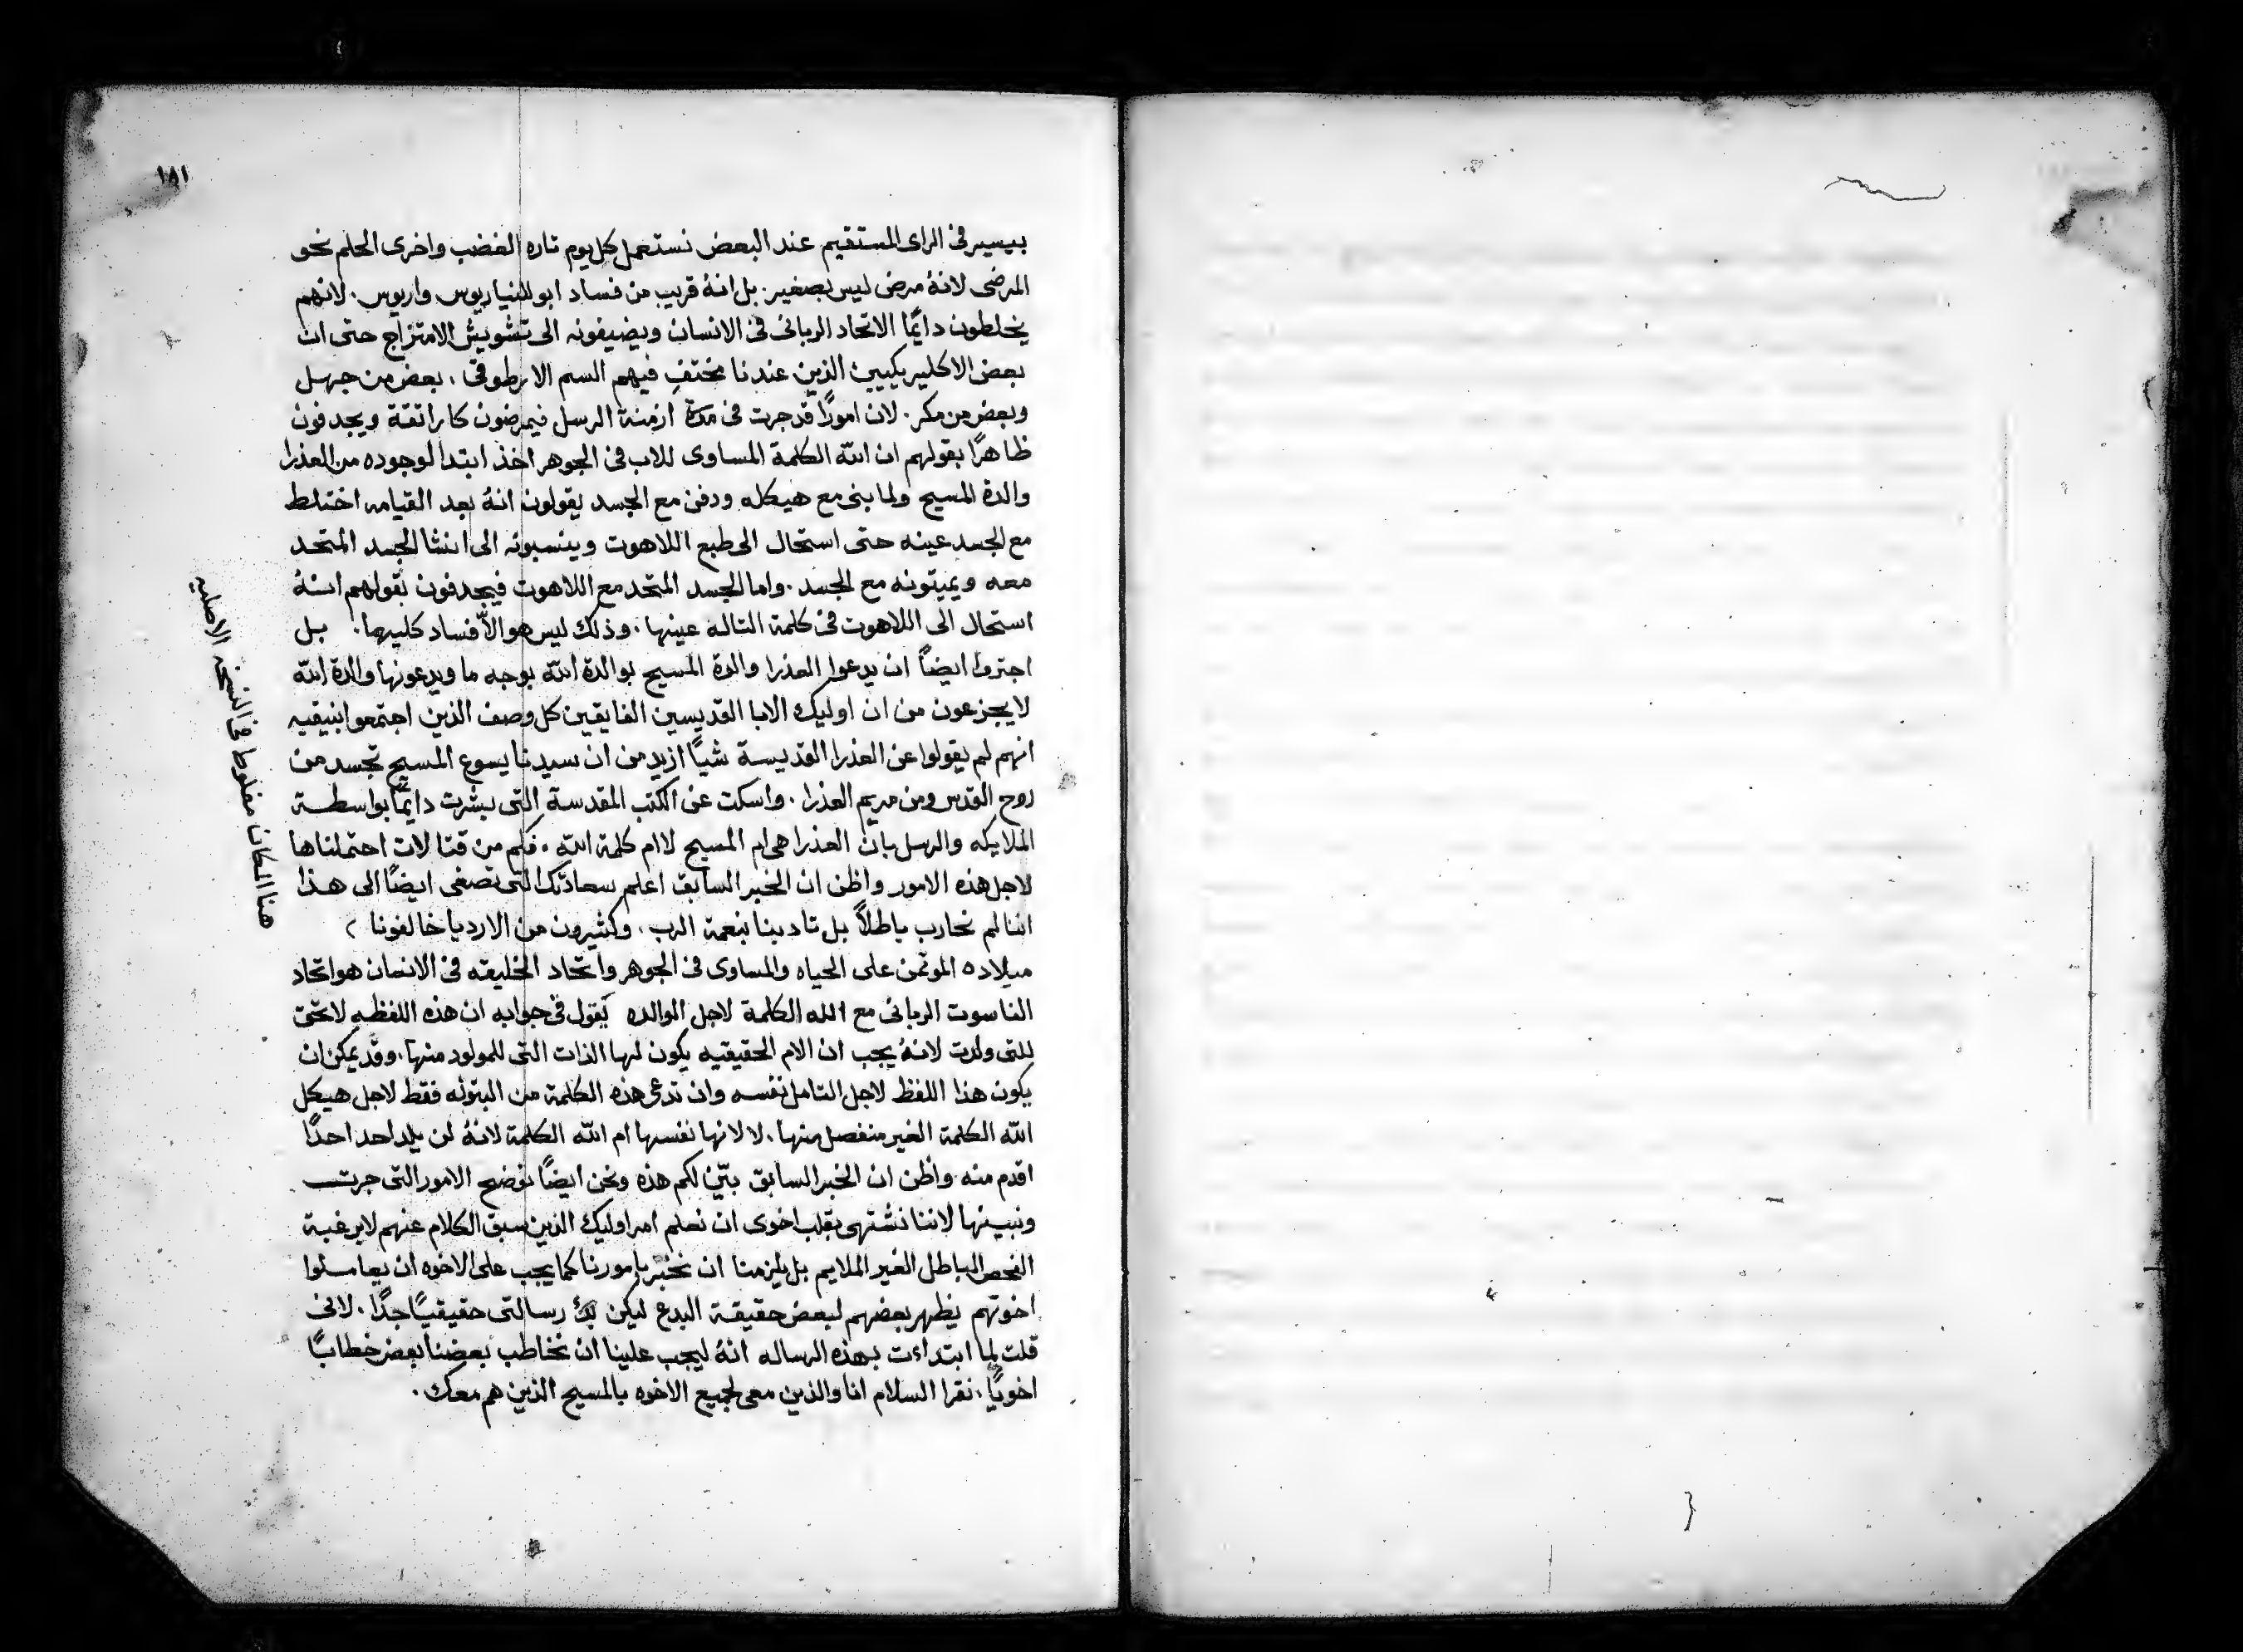 ١٨١
بيسير في الراى المستقيم عند البعض نستعمل كل يوم تاره الغضب واخرى الحلم نحو
المرضى لانهُ مرض ليس بصغير. بل انهُ قريب من فساد ابوللنياريوس واريوس. لانهم
يخلطون دايمًا الاتحاد الربانى فى الانسان ويضيفونه الى تشويش الامتزاج حتى ان
بعض الاكليريكيين الذين عندنا مختفٍ فيهم السم الارطوقى. بعض من جهل
وبعض من مكر. لان امورًا قد جرت فى مدة ازمنة الرسل فيمرضون كاراتقة ويجدفون
ظاهرًا بقولهم ان الله الكلمة المساوى للاب فى الجوهر اخذ ابتدا لوجوده من العذرا
والدة المسيح ولما بنى مع هيكله ودفن مع الجسد يقولون انهُ بعد القيامه اختلط
مع الجسد عينه حتى استحال الى طبع اللاهوت وينسبونه الى انشا الجسد المتحد
معه ويميتونه مع الجسد. واما الجسد المتحد مع اللاهوت فيجدفون بقولهم انهُ
استحال الى اللاهوت فى كلمة التاله عينها. وذلك ليس هو الاّ فساد كليهما. بل
اجتروا ايضاً ان يدعوا العذرا والدة المسيح بوالدة الله بوجه ما ويدعونها والدة الله
لا يجزعون من ان اوليك الابا القديسين الفايقين كل وصف الذين اجتمعوا بنيقيه
انهم لم يقولوا عن العذرا القديسة شيًا ازيد من ان سيدنا يسوع المسيح تجسد من
روح القدس ومن مريم العذرا. واسكت عن الكتب المقدسة التى بشرت دايمًا بواسطة
الملايكه والرسل بان العذرا هى ام المسيح لا ام كلمة الله. فكم من قتالات احتملناها
لاجل هذه الامور واظن ان الخبر السابق اعلم سعادتك التى تصغى ايضًا الى هذا
اننا لم نحارب باطلاً بل تادبنا بنعمة الرب. وكثيرون من الاردياء خالفونا
ميلاده الموتمن على الحياه والمساوى فى الجوهر واتحاد الخليقه فى الانسان هو اتحاد
الناسوت الربانى مع الله الكلمة لاجل الوالده يقول فى جوابه ان هذه اللفظه لا تحق
للتى ولدت لانهُ يجب ان الام الحقيقيه يكون لها الذات التى للمولود منها. وقد يمكن ان
يكون هذا اللفظ لاجل التامل نفسه وان تدعى هذه الكلمة من البتوله فقط لاجل هيكل
الله الكلمة الغير منفصل منها. لا لانها نفسها ام الله الكلمة لانهُ لن يلد احد احدًا
اقدم منه واظن ان الخبر السابق بيّن لكم هذه ونحن ايضًا نوضح الامور التى جرت
ونبينها لاننا نشتهى بقلب اخوى ان نعلم امر اوليك الذين سبق الكلام عنهم لا برغبة
الفحص الباطل الغير الملايم بل يلزمنا ان نخبر بامورنا كما يجب على الاخوه ان يعاملوا
اخوتهم يظهر بعضهم لبعض حقيقة البدع ليكن بدؤ رسالتى حقيقيًا جدًا. لانى
قلت لما ابتداءت بهذه الرساله انهُ ليجب علينا ان نخاطب بعضنا بعض خطابًا
اخويًا. نقرا السلام انا والذين معى لجميع الاخوه بالمسيح الذين هم معك.
هنا المكان مغلوط فى النسخه الاصليه